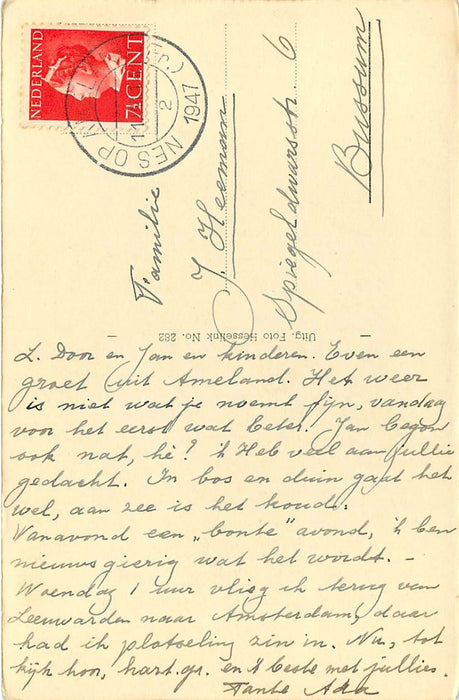 NEDERLAND
7½ CENT
NES OP
1947
Familie
J. Heeman
Spiegeldwarsstr. 6
Bussum
Uitg. Foto Hesselink No. 282
L. Door en Jan en kinderen. Even een
groet uit Ameland. Het weer
is niet wat je noemt fijn, vandaag
voor het eerst wat beter. Jan begon
ook nat, hè? 'k Heb veel aan jullie
gedacht. In bos en duin gaat het
wel, aan zee is het koud.
Vanavond een „bonte" avond, 'k ben
nieuwsgierig wat het wordt. -
Woensdag 1 uur vlieg ik terug van
Leeuwarden naar Amsterdam, daar
had ik plotseling zin in. Nu, tot
kijk hoor, hart. gr. en 't beste met jullies.
Tante Ada